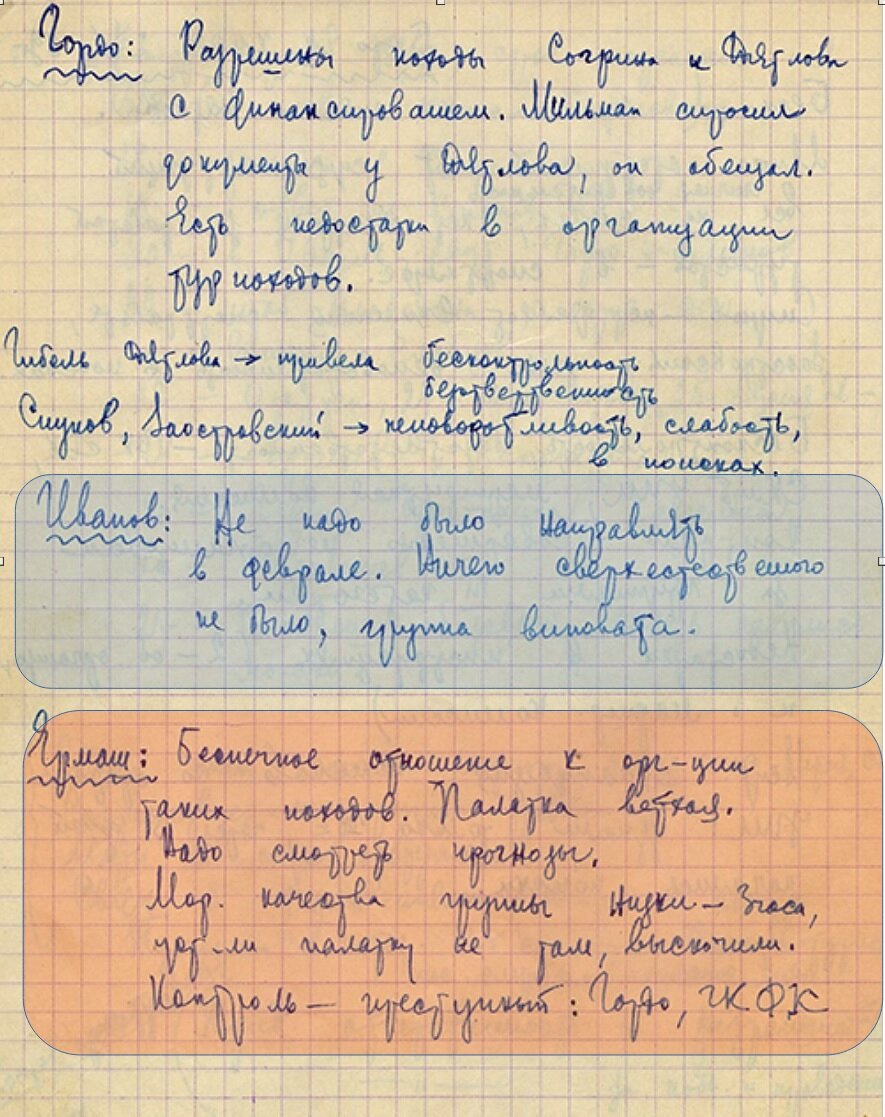 Гордо: Разрешены походы Согрина и Дятлова
с финансированием. Мильман спросил
документы у Дятлова, он обещал.
Есть недостатки в организации
турпоходов.
Гибель Дятлова → привела бесконтрольность
безответственность
Слунов, Заостровский → неповоротливость, слабость,
в поисках.
Иванов: Не надо было направлять
в феврале. Ничего сверхестественого
не было, группа виновата.
Ермаш: Беспечное отношение к орг-ции
таких походов. Палатка ветхая.
Надо смотреть прогнозы.
Мор. качества группы низки – 3 часа,
уст-ли палатку не там, выскочили.
Контроль – преступный: Гордо, ГКФК